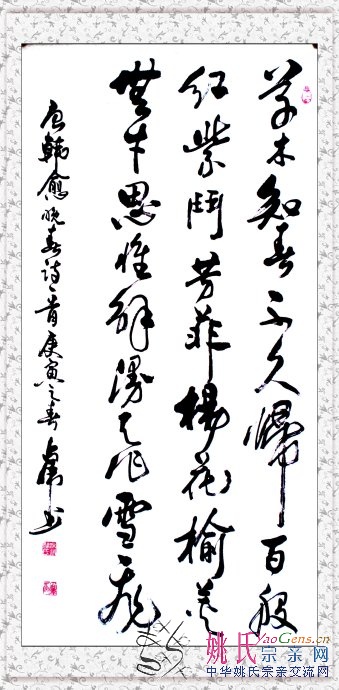 草木知春不久歸百般
红紫鬥芳菲楊花榆荚
無才思惟解漫天作雪飛
唐韓愈晚春诗一首庚寅之春 书
姚氏宗亲网
YaoGens.cn
中华姚氏宗亲交流网